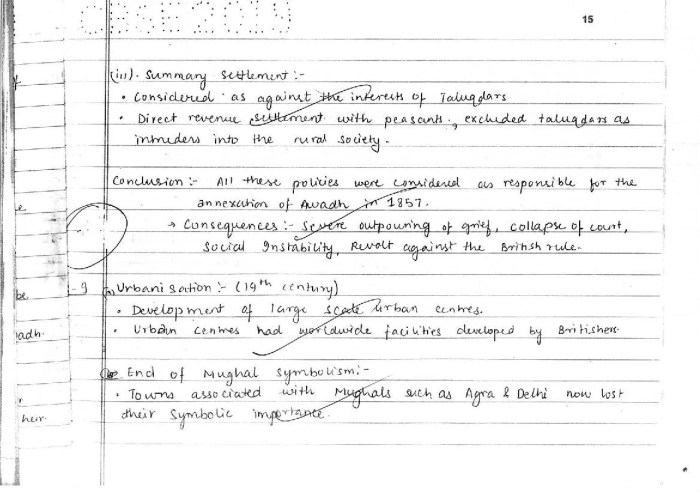 CBSE 2019
15
(iii). Summary Settlement :-
• Considered as against the interests of Taluqdars
• Direct revenue settlement with peasants., excluded taluqdars as
intruders into the rural society.
Conclusion :- All these policies were considered as responsible for the
annexation of Awadh in 1857.
→ Consequences :- Severe outpouring of grief, collapse of court,
Social Instability, Revolt against the British rule.
-9 (i) Urbanisation :- (19th century)
• Development of large scale urban centres.
be
• Urban centres had worldwide facilities developed by Britishers.
adh.
End of Mughal Symbolism :-
• Towns associated with Mughals such as Agra & Delhi now lost
their symbolic importance.
heir